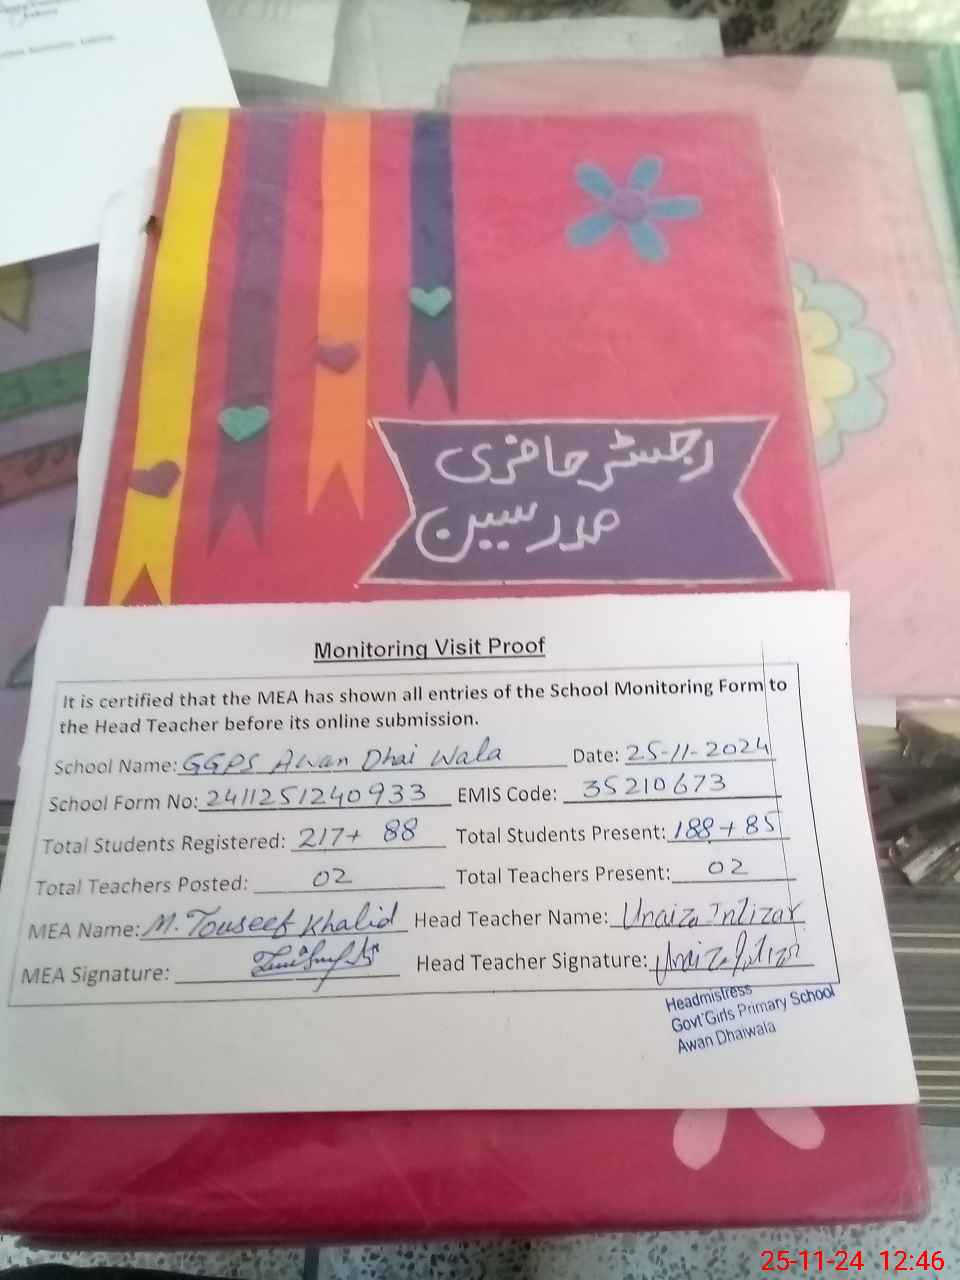 رجسٹر حاضری
مدرسین
Monitoring Visit Proof
It is certified that the MEA has shown all entries of the School Monitoring Form to
the Head Teacher before its online submission.
School Name: GGPS Awan Dhai Wala Date: 25-11-2024
School Form No: 2411251240933 EMIS Code: 35210673
Total Students Registered: 217+ 88 Total Students Present: 188+85
Total Teachers Posted: 02 Total Teachers Present: 02
MEA Name: M. Touseef Khalid Head Teacher Name: Unaiza Intizar
MEA Signature: Head Teacher Signature: Unaiza Intizar
Headmistress
Govt Girls Primary School
Awan Dhaiwala
25-11-24 12:46